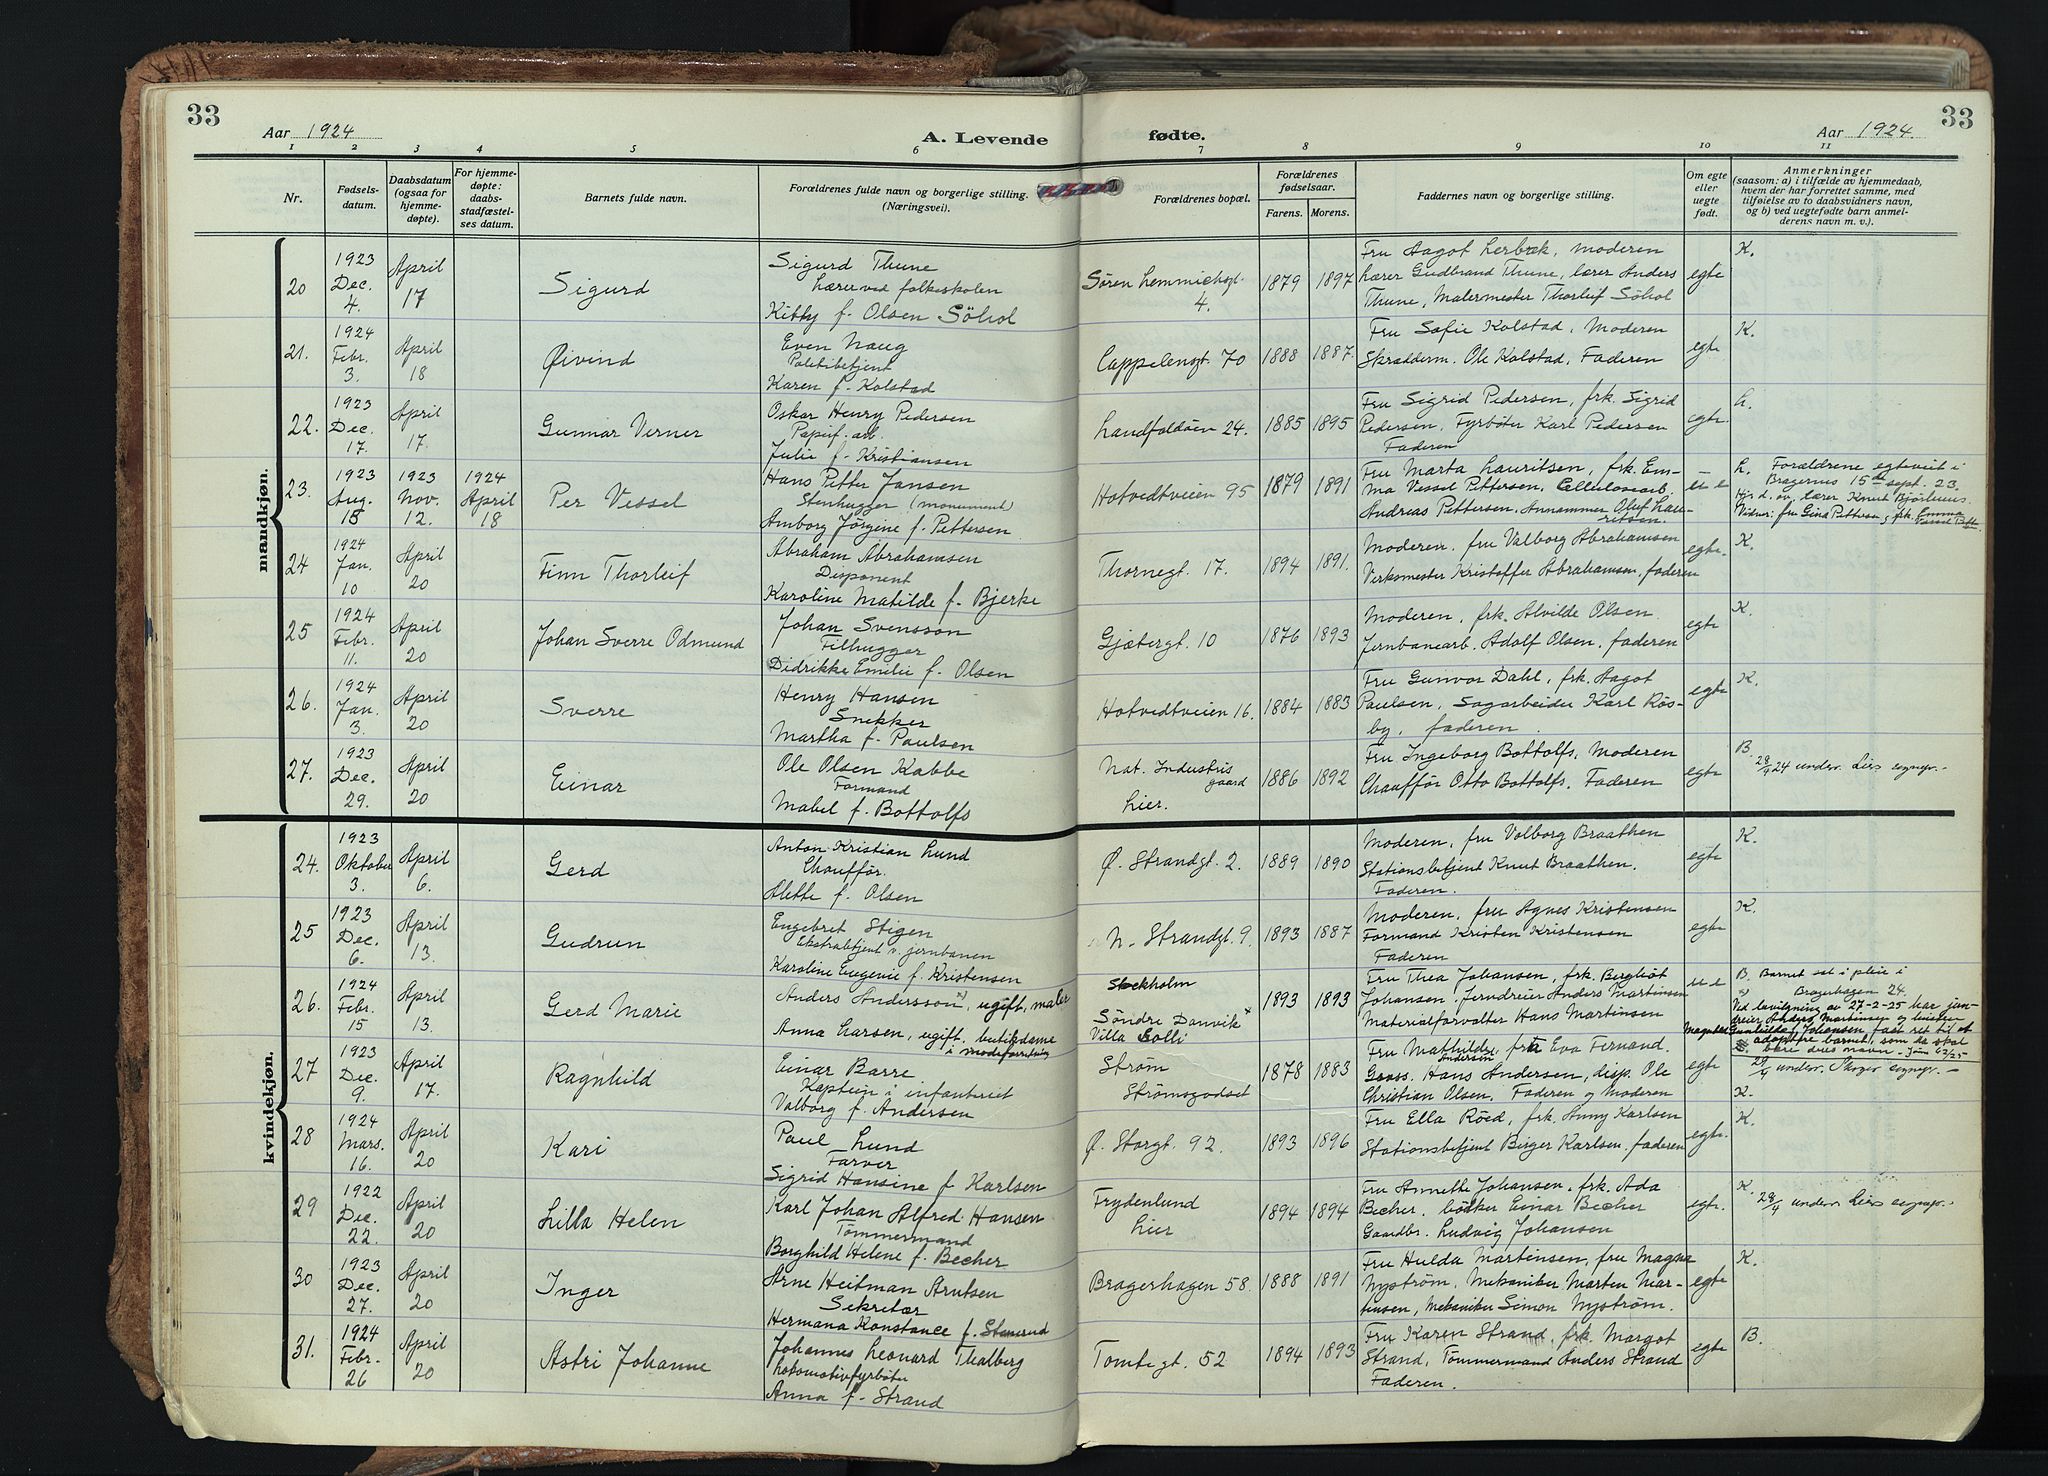 33
Aar 1924
A. Levende
fødte.
Aar 1924.
33
1 2 3 4 5 6 7 8 9 10 11
Nr.
Fødsels-
datum.
Daabsdatum
(ogsaa for
hjemme-
døpte).
For hjemme-
døpte:
daabs-
stadfæstel-
ses datum.
Barnets fulde navn.
Forældrenes fulde navn og borgerlige stilling.
(Næringsvei).
Forældrenes bopæl.
Forældrenes
fødselsaar.
Farens. Morens.
Faddernes navn og borgerlige stilling.
Om egte
eller
uegte
født.
Anmerkninger
(saasom: a) i tilfælde av hjemmedaab,
hvem der har forrettet samme, med
tilføielse av to daabsvidners navn,
og b) ved uegtefødte barn anmel-
derens navn m. v.).
mandkjøn.
20
1923
Dec.
4.
April
17
Sigurd
Sigurd Thune
Lærer ved folkeskolen
Kitty f. Olsen Søhol
Søren Lemmichsgt.
4.
1879 1897
Fru Aagot Lerbrek, Moderen
Lærer Gudbrand Thune, lærer Anders
Thune, Malermester Thorleif Søhol
egte
K.
21.
1924
Febr.
3.
April
18
Øivind
Even Naug
Politibetjent
Karen f. Kolstad
Cappelensgt. 70
1888 1887.
Fru Sofie Kolstad, Moderen
Skrædderm. Ole Kolstad, Faderen
egte
K.
22.
1923
Dec.
17.
April
17.
Gunnar Verner
Oskar Henry Pedersen
Papirf. arb.
Julie f. Kristiansen
Landfaldøen 24.
1885 1895
Fru Sigrid Pedersen, frk. Sigrid
Pedersen, Fyrbøter Karl Pedersen
Faderen
egte.
L.
23.
1923
Aug.
15
1923
Nov.
12.
1924
April
18
Per Vessel
Hans Petter Jansen
Stenhugger (monument)
Amborg Jørgine f. Pettersen
Hotvedtveien 95
1879 1891
Fru Marta Lauritsen, frk. Em-
ma Vessel Pettersen, Cellulosearb.
Andreas Pettersen, Annammer Oluf Lau-
ritsen.
L. Forældrene egteviet i
Bragernes 15de sept. 23.
Hj. d. av lærer Knut Bjørhuus.
Vidner: fru Gina Pettersen, frk. Emma
24
1924
Jan.
10
April
20
Finn Thorleif
Abraham Abrahamsen
Disponent
Karoline Matilde f. Bjerke
Thornegt. 17.
1894 1891.
Moderen, fru Valborg Abrahamsen
Verksmester Kristoffer Abrahamsen, faderen
egte.
K.
25
1924
Febr.
11.
April
20
Johan Sverre Odmund
Johan Svensson
Filhugger
Didrikke Emilie f. Olsen
Gjætergt. 10
1876 1893
Moderen, frk. Alvilde Olsen
Jernbanearb. Adolf Olsen, faderen
egte
K.
26.
1924
Jan.
3.
April
20
Sverre
Henry Hansen
Snekker
Martha f. Paulsen
Hotvedtveien 16.
1884 1883
Fru Gunvor Dahl, frk. Aagot
Paulsen, Sagarbeider Karl Røs-
by, faderen
egte
K.
27.
1923
Dec.
29.
April
20
Einar
Ole Olsen Kabbe
Formand
Mabel f. Bottolfs
Nat. Industris
gaard
Lier.
1886 1892
Fru Ingeborg Bottolfs, Moderen
Chauffør Otto Bottolfs, Faderen
egte
B.
28/4 24 underr. Liers sognepr.
kvindekjøn.
24.
1923
Oktober
3.
April
6.
Gerd
Anton Kristian Lund
Chauffør.
Alette f. Olsen
Ø. Strandgt. 2.
1889 1890
Moderen, fru Valborg Braathen
Stationsbetjent Knut Braathen.
Faderen.
egte
K.
25
1923
Dec.
6.
April
13.
Gudrun
Engebret Stigen
Ekstrabetjent v. jernbanen
Karoline Eugenie f. Kristensen
N. Strandgt. 9.
1893 1887
Moderen, fru Agnes Kristensen
Formand Kristen Kristensen
Faderen
egte
K.
26.
1924
Febr.
15
April
13.
Gerd Marie
Anders Andersson x), ugift, maler
Anna Larsen, ugift, butikdame
i modeforretning
Stockholm
Søndre Danvik x
Villa Solli
1893 1893
Fru Thea Johansen, frk. Bergljot
Johansen, Jerndreier Anders Martinsen
Materialforvalter Hans Martinsen
u e
B. Barnet sat i pleie i
Bragerhagen 24.
Ved bevilgning av 27-2-25 har jern-
dreier Anders Martinsen og hustru
Magnhild Gunhilda f. Johansen, faat ret til at
adoptere barnet, som da skal
bære deres navn. - Jour. 62/25
27
1923
Dec.
9.
April
17.
Ragnhild
Einar Barre
Kaptein i infanteriet
Valborg f. Andersen
Strøm
Strømsgodset
1878 1883
Fru Mathilde Andersen, fru Eva Fernand.
Gross. Hans Andersen, disp. Ole
Christian Olsen, Faderen og Moderen
egte
29/4 underr. Skoger sognepr. -
K.
28
1924
Mars.
16.
April
20
Kari
Paul Lund
Farver
Sigrid Hansine f. Karlsen
Ø. Storgt. 92.
1893 1896
Fru Ella Røed, frk. Anny Karlsen
Stationsbetjent Birger Karlsen, faderen
egte.
K.
29
1922
Dec.
22.
April
20
Lilla Helen
Karl Johan Alfred Hansen
Tømmermand
Borghild Helene f. Becher
Frydenlund
Lier
1894 1894
Fru Annette Johansen, frk. Ada
Becher, bøtker Einar Becher
Gaardbr. Ludvig Johansen
egte.
K.
28/4 underr. Liers sognepr.
30
1923
Dec.
27.
April
20
Inger
Arne Heitman Arntsen
Sekretær
Hermana Konstance f. Stenerud
Bragerhagen 58.
1888 1891
Fru Hulda Martinsen, fru Magna
Nystrøm, Mekaniker Marten Mar-
tinsen, Mekaniker Simon Nystrøm.
egte
K.
31.
1924
Febr.
26
April
20
Astri Johanne
Johannes Leonard Thalberg
Lokomotivfyrbøter
Anna f. Strand
Tomtegt. 52
1894 1893
Fru Karen Strand, frk. Margot
Strand, Tømmermand Anders Strand
Faderen.
egte
B.